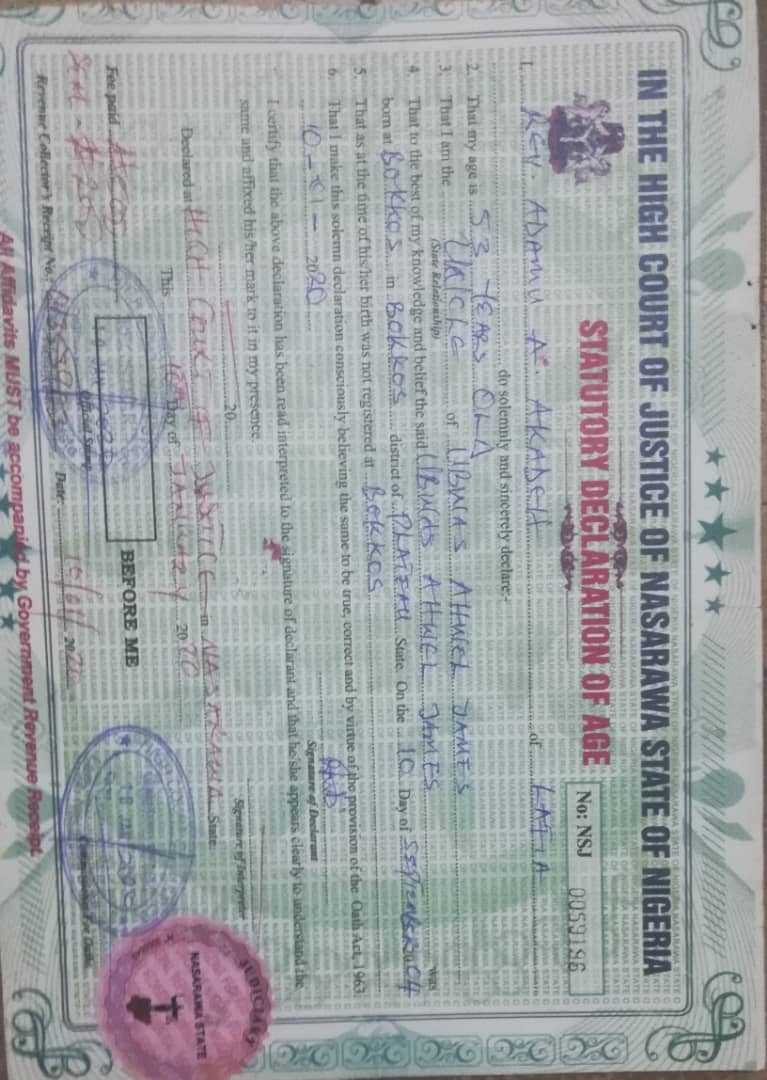 IN THE HIGH COURT OF JUSTICE OF NASARAWA STATE OF NIGERIA
STATUTORY DECLARATION OF AGE
No: NSJ 0059196
1. REV. ADAMU A. AKADEH of LAFIA
do solemnly and sincerely declare:-
2. That my age is 53 YEARS OLD
3. That I am the UNCLE of LIBNAS AHWEL JAMES
(State Relationship)
4. That to the best of my knowledge and belief the said LIBNAS AHWEL JAMES was
born at BOKKOS in BOKKOS district of PLATEAU State. On the 10 Day of SEPTEMBER
5. That as at the time of his/her birth was not registered at BOKKOS
6. That I make this solemn declaration consciously believing the same to be true, correct and by virtue of the provision of the Oath Act, 1963
10-01-2020
Signature of Declarant
I certify that the above declaration has been read interpreted to the signature of declarant and that he/she appears clearly to understand the
same and affixed his/her mark to it in my presence.
20
Signature of Interpreter
Declared at HIGH COURT OF JUSTICE in NASARAWA State
This 10th Day of JANUARY 2020
BEFORE ME
Fee paid
Revenue Collector's Receipt No.
Date: 10/01/2020
All Affidavits MUST be accompanied by Government Revenue Receipt
JUDICIARY
NASARAWA STATE